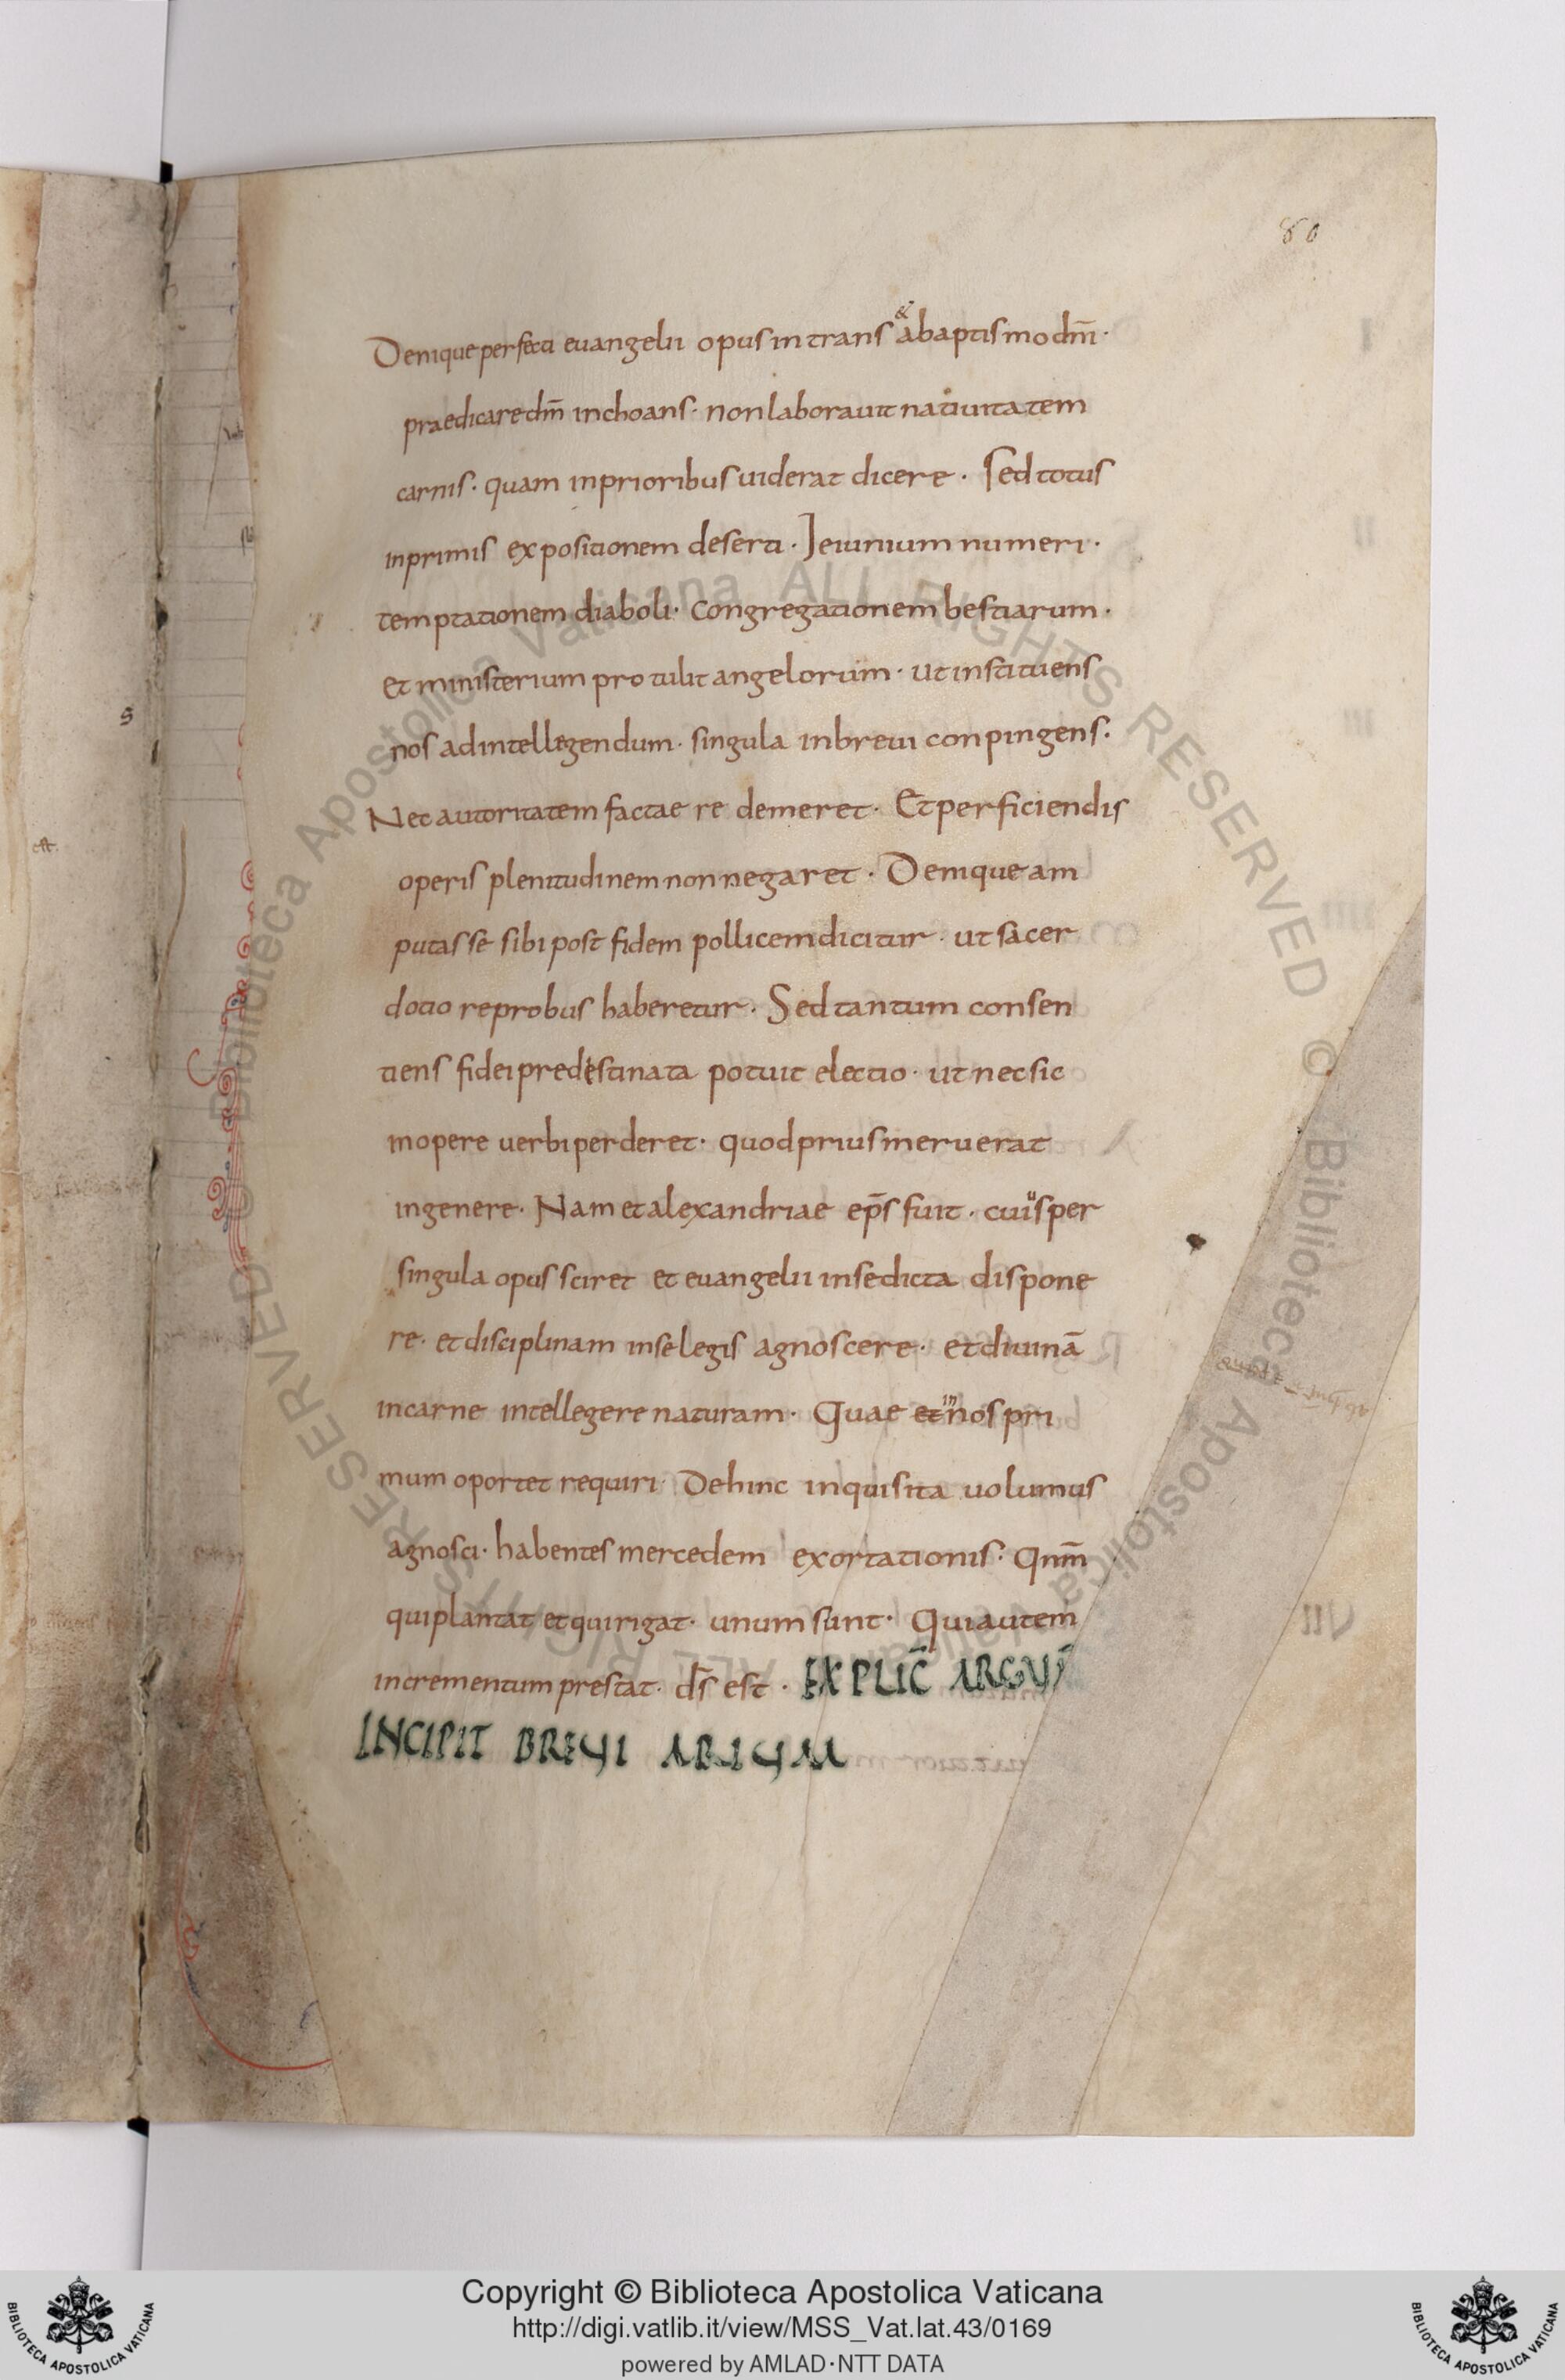 80
Denique perfecti euangelii opus intrans & a baptismo dnī·
praedicare dnm̄ inchoans· non laborauit natiuitatem
carnis· quam in prioribus uiderat dicere· Sed totus
inprimis expositionem deserti· Ieiunium numeri·
temptationem diaboli· congregationem bestiarum·
et ministerium protulit angelorum· ut instituens
nos ad intellegendum· singula in breui conpingens·
Nec autoritatem factae re demeret· Et perficiendis
operis plenitudinem non negaret· Denique am
putasse sibi post fidem pollicem dicitur· ut sacer
dotio reprobus haberetur· Sed tantum consen
tiens fidei predestinata potuit electio· ut nec sic
in opere uerbi perderet· quod prius meruerat
in genere· Nam et alexandriae ep̄s fuit· cuius per
singula opus sciret et euangelii in se dicta dispone
re· et disciplinam in se legis agnoscere· et diuinā
in carne intellegere naturam· Quae et in nos pri
mum oportet requiri· Dehinc inquisita uolumus
agnosci· habentes mercedem exortationis· Qnm̄
qui plantat et qui rigat· unum sunt· Qui autem
incrementum prestat· dī est· EXPLIC̄ ARGUM̄
INCIPIT BREUIARIUM
Copyright © Biblioteca Apostolica Vaticana
http://digi.vatlib.it/view/MSS_Vat.lat.43/0169
powered by AMLAD·NTT DATA
BIBLIOTECA APOSTOLICA VATICANA
BIBLIOTECA APOSTOLICA VATICANA